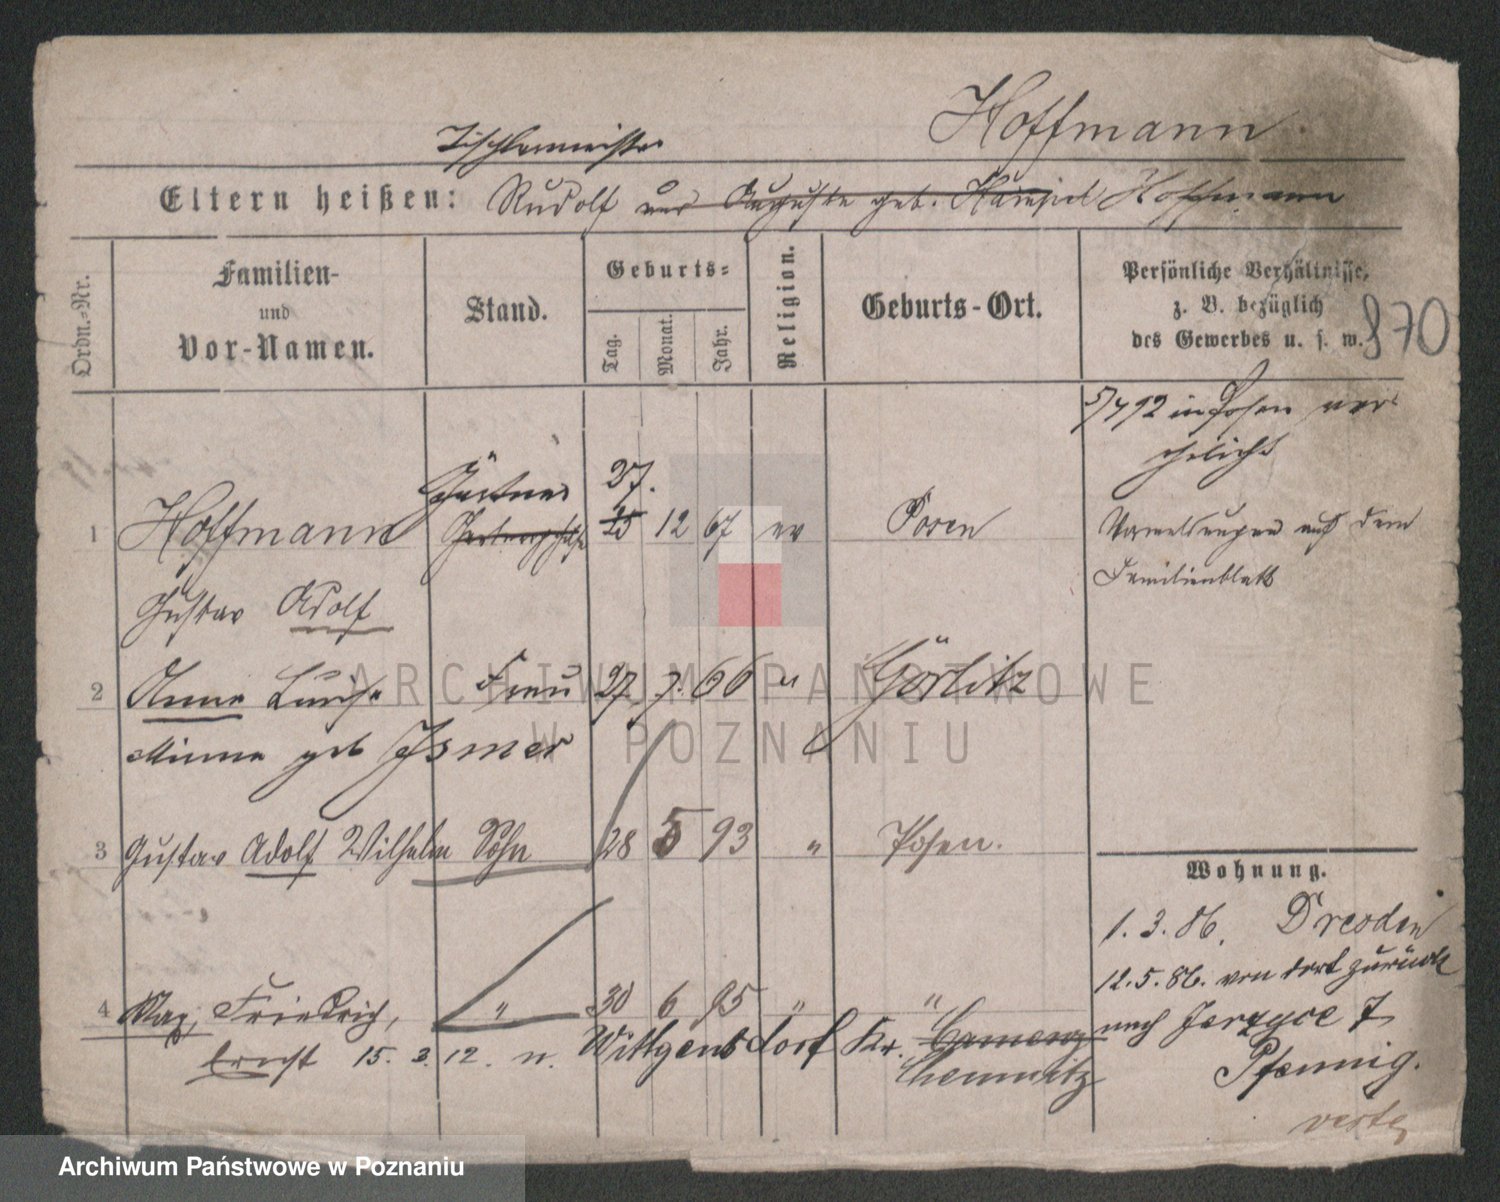 Hoffmann
Tischlermeister
Eltern heißen: Rudolf und Auguste geb. Hoffmann
Ordn.-Nr.
Familien-
und
Vor-Namen.
Stand.
Geburts-
Tag.
Monat.
Jahr.
Religion.
Geburts-Ort.
Persönliche Verhältnisse,
z. B. bezüglich
des Gewerbes u. s. w.
870
5/7 92 in Posen ver
ehelicht
Gärtner 27.
1 Hoffmann 25 12 67 ev Posen
auf dem
Familienblatt
Gustav Adolf
2 Anna Luise Frau 27 7. 66 " Görlitz
Minna geb Ismer
3 Gustav Adolf Wilhelm Sohn 28 5 93 " Posen.
Wohnung.
1. 3. 86. Dresden
12. 5. 86. von dort zurück
4 Max, Friedrich, " 30 6 95 " "
nach Jerzyce 7
Ernst 15. 3. 12. n. Wittgensdorf Kr. Camenz
Chemnitz
Pfennig.
verte
ARCHIWUM PAŃSTWOWE
W POZNANIU
Archiwum Państwowe w Poznaniu